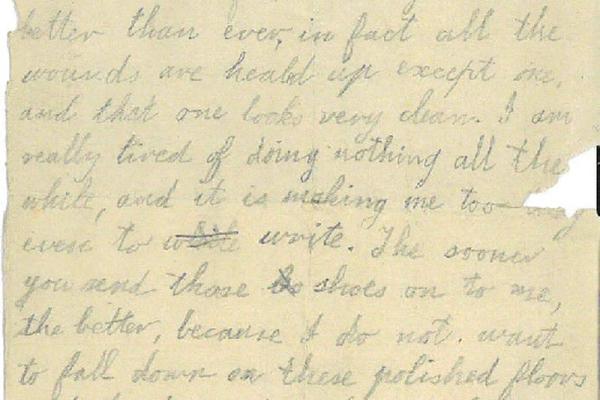 better than ever, in fact all the
wounds are heald up except one,
and that one looks very clean. I am
really tired of doing nothing all the
while, and it is making me too
even to write. The sooner
you send those shoes on to me,
the better, because I do not want
to fall down on these polished floors